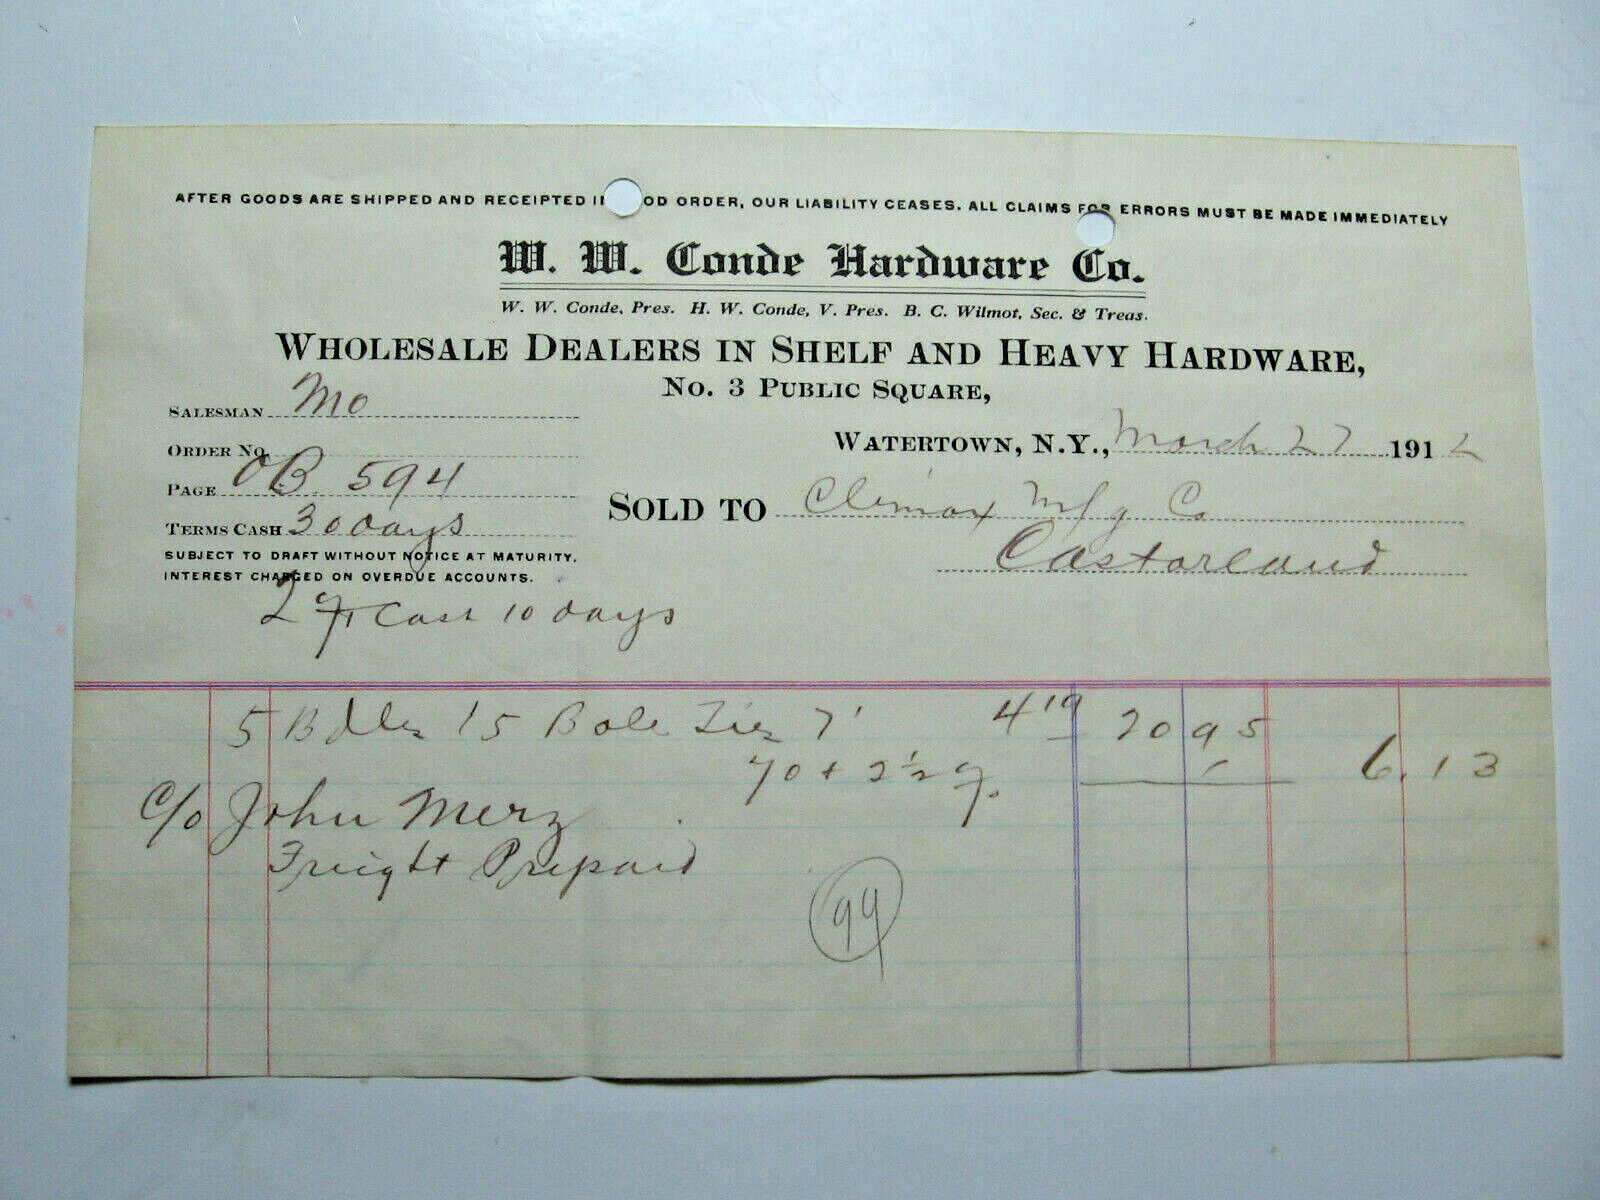 AFTER GOODS ARE SHIPPED AND RECEIPTED I OD ORDER, OUR LIABILITY CEASES. ALL CLAIMS FOR ERRORS MUST BE MADE IMMEDIATELY
W. W. Conde Hardware Co.
W. W. Conde, Pres. H. W. Conde, V. Pres. B. C. Wilmot, Sec. & Treas.
WHOLESALE DEALERS IN SHELF AND HEAVY HARDWARE,
No. 3 PUBLIC SQUARE,
SALESMAN Mo
WATERTOWN, N.Y., March 27 1912
ORDER NO.
PAGE OB 594
SOLD TO Climax Mfg Co
TERMS CASH 30 days
Castorland
SUBJECT TO DRAFT WITHOUT NOTICE AT MATURITY.
INTEREST CHARGED ON OVERDUE ACCOUNTS.
2% Cash 10 days
5 Bdles 15 Bale Ties 7' 4 19 20 95
70 + 2 1/2 % 6.13
c/o John Merz
Freight Prepaid
99